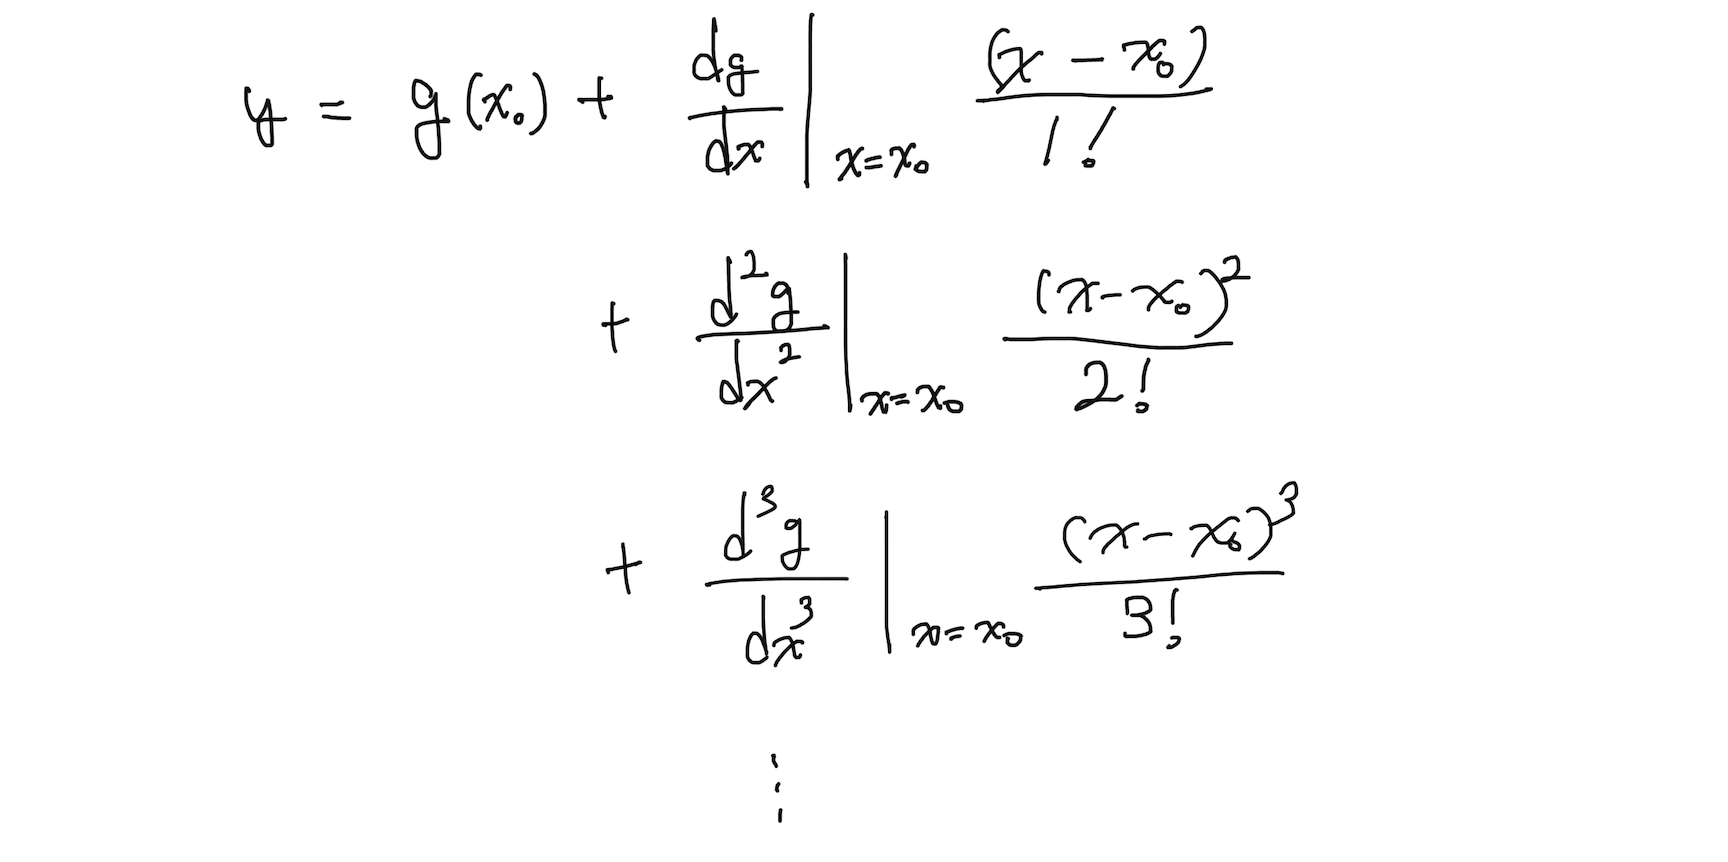 y = g(x₀) + dg/dx |ₓ₌ₓ₀ (x - x₀)/1!
+ d²g/dx² |ₓ₌ₓ₀ (x - x₀)²/2!
+ d³g/dx³ |ₓ₌ₓ₀ (x - x₀)³/3!
⋮